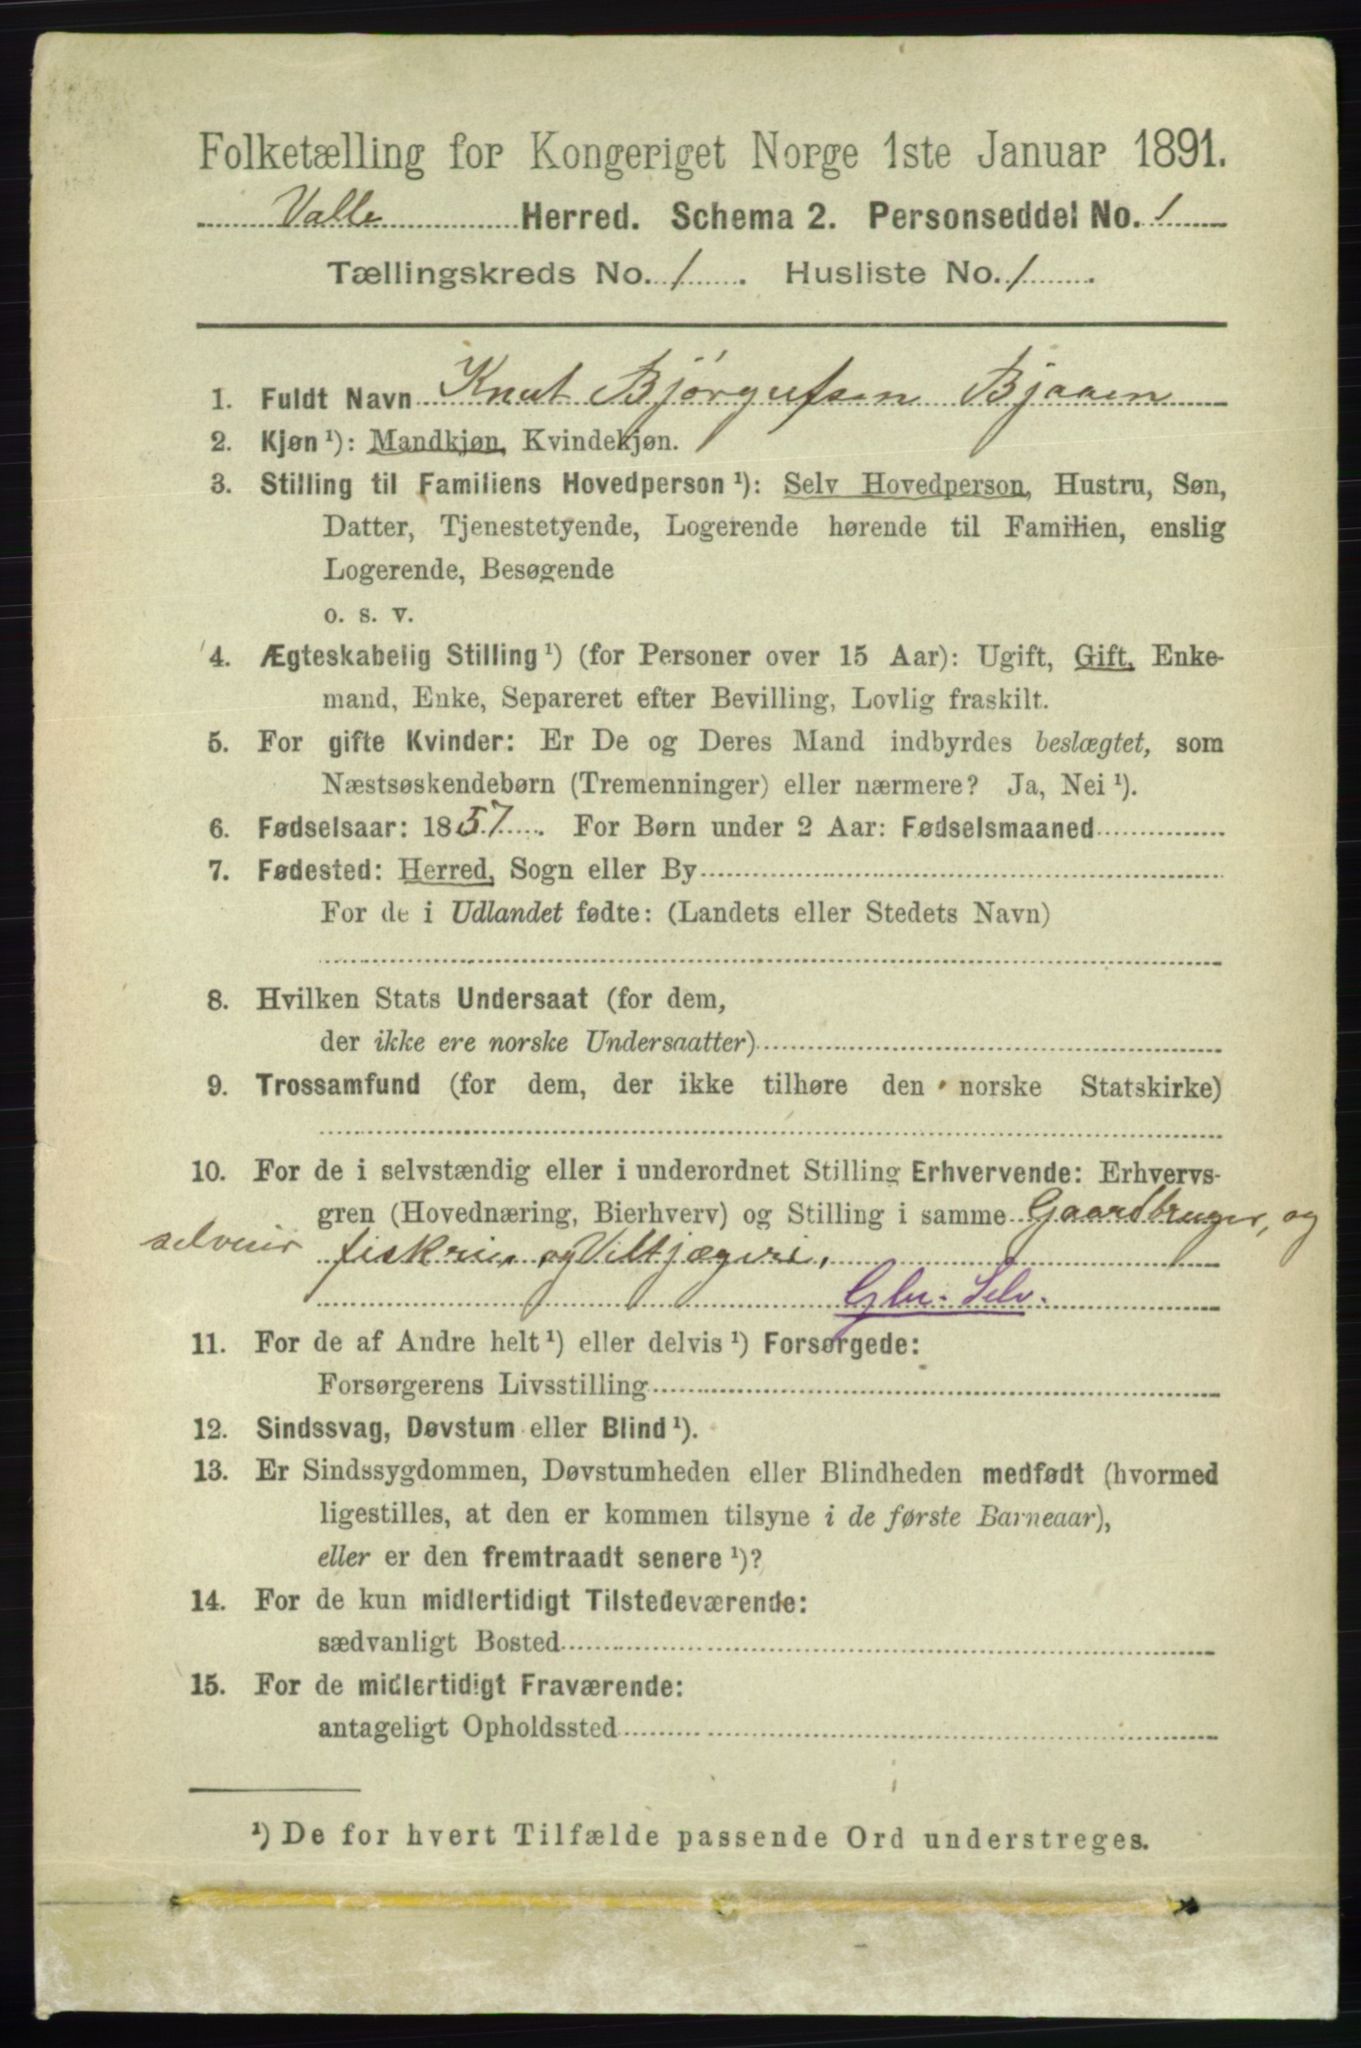 Folketælling for Kongeriget Norge 1ste Januar 1891.
Valle Herred. Schema 2. Personseddel No. 1
Tællingskreds No. 1. Husliste No. 1.
1. Fuldt Navn Knut Bjørgufsen Bjaaen
2. Kjøn ¹): Mandkjøn, Kvindekjøn.
3. Stilling til Familiens Hovedperson ¹): Selv Hovedperson, Hustru, Søn,
Datter, Tjenestetyende, Logerende hørende til Familien, enslig
Logerende, Besøgende
o. s. v.
4. Ægteskabelig Stilling ¹) (for Personer over 15 Aar): Ugift, Gift, Enke-
mand, Enke, Separeret efter Bevilling, Lovlig fraskilt.
5. For gifte Kvinder: Er De og Deres Mand indbyrdes beslægtet, som
Næstsøskendebørn (Tremenninger) eller nærmere? Ja, Nei ¹).
6. Fødselsaar: 1857. For Børn under 2 Aar: Fødselsmaaned
7. Fødested: Herred, Sogn eller By
For de i Udlandet fødte: (Landets eller Stedets Navn)
8. Hvilken Stats Undersaat (for dem,
der ikke ere norske Undersaatter)
9. Trossamfund (for dem, der ikke tilhøre den norske Statskirke)
10. For de i selvstændig eller i underordnet Stilling Erhvervende: Erhvervs-
gren (Hovednæring, Bierhverv) og Stilling i samme Gaardbruger, og
selveier fiskrie, og Viltjægeri,
Gbr. Selv.
11. For de af Andre helt ¹) eller delvis ¹) Forsørgede:
Forsørgerens Livsstilling
12. Sindssvag, Døvstum eller Blind ¹).
13. Er Sindssygdommen, Døvstumheden eller Blindheden medfødt (hvormed
ligestilles, at den er kommen tilsyne i de første Barneaar),
eller er den fremtraadt senere ¹)?
14. For de kun midlertidigt Tilstedeværende:
sædvanligt Bosted
15. For de midlertidigt Fraværende:
antageligt Opholdssted
¹) De for hvert Tilfælde passende Ord understreges.